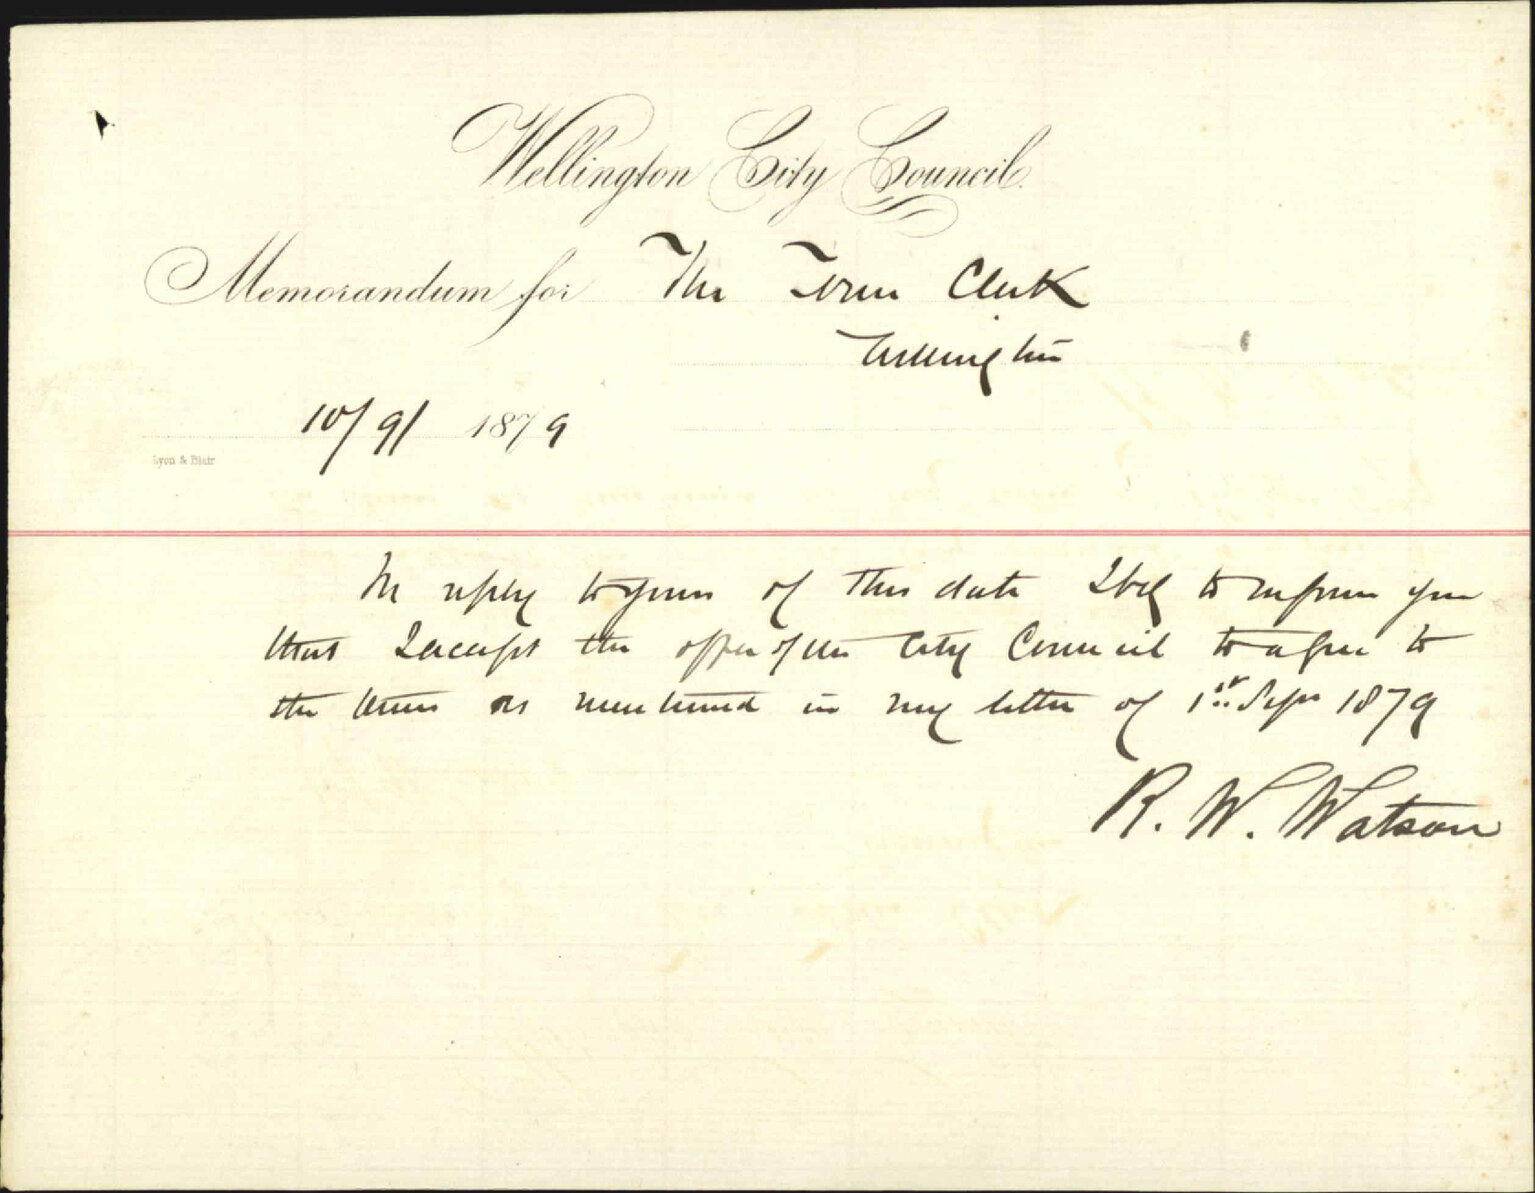 Wellington City Council.
Memorandum for The Town Clerk
Wellington
10/9/ 1879
Lyon & Blair
In reply to yours of this date I beg to inform you
that I accept the offer of the City Council to agree to
the terms as mentioned in my letter of 1st Sept 1879
R. W. Watson